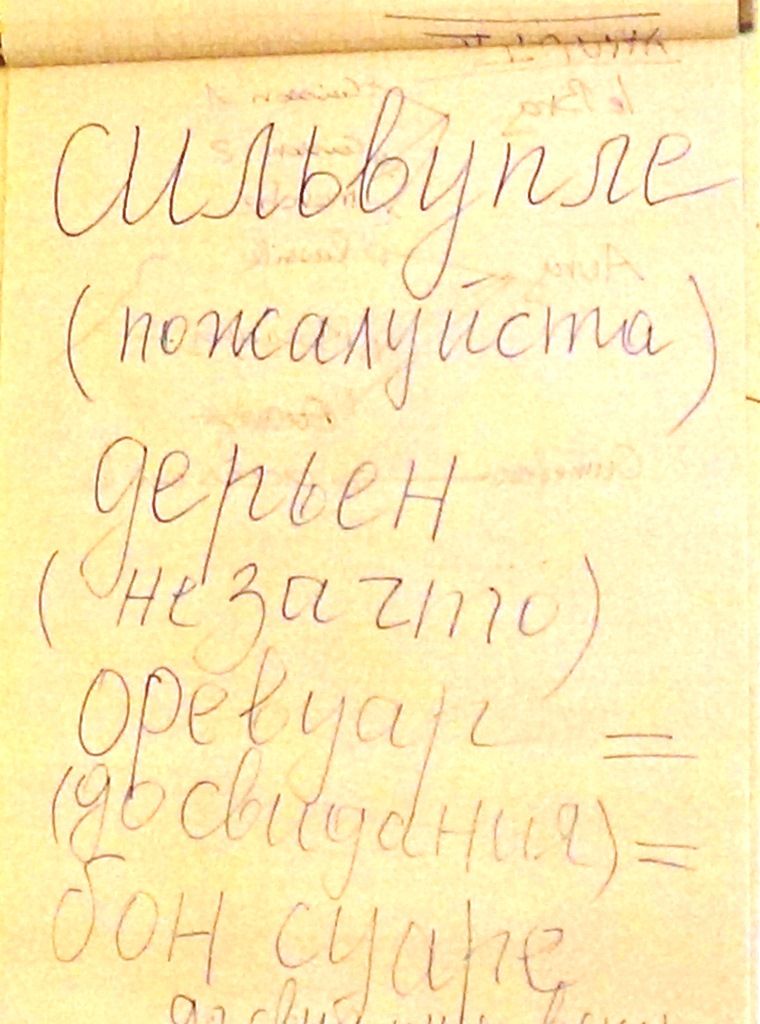 сильвупле
(пожалуйста)
дерьен
(не за что)
оревуар =
(до свидания) =
бон суаре